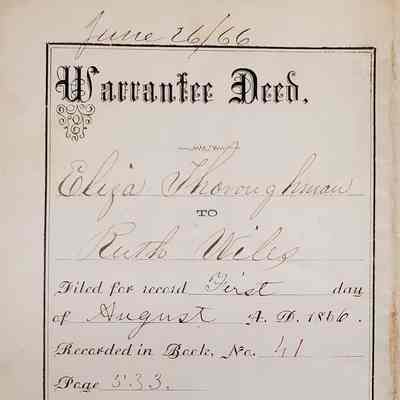 June 26/66
Warrantee Deed.
Eliza Thoroughman
TO
Ruth Wiles
Filed for record First day
of August A. D. 1866.
Recorded in Book, No. 41
Page 533.